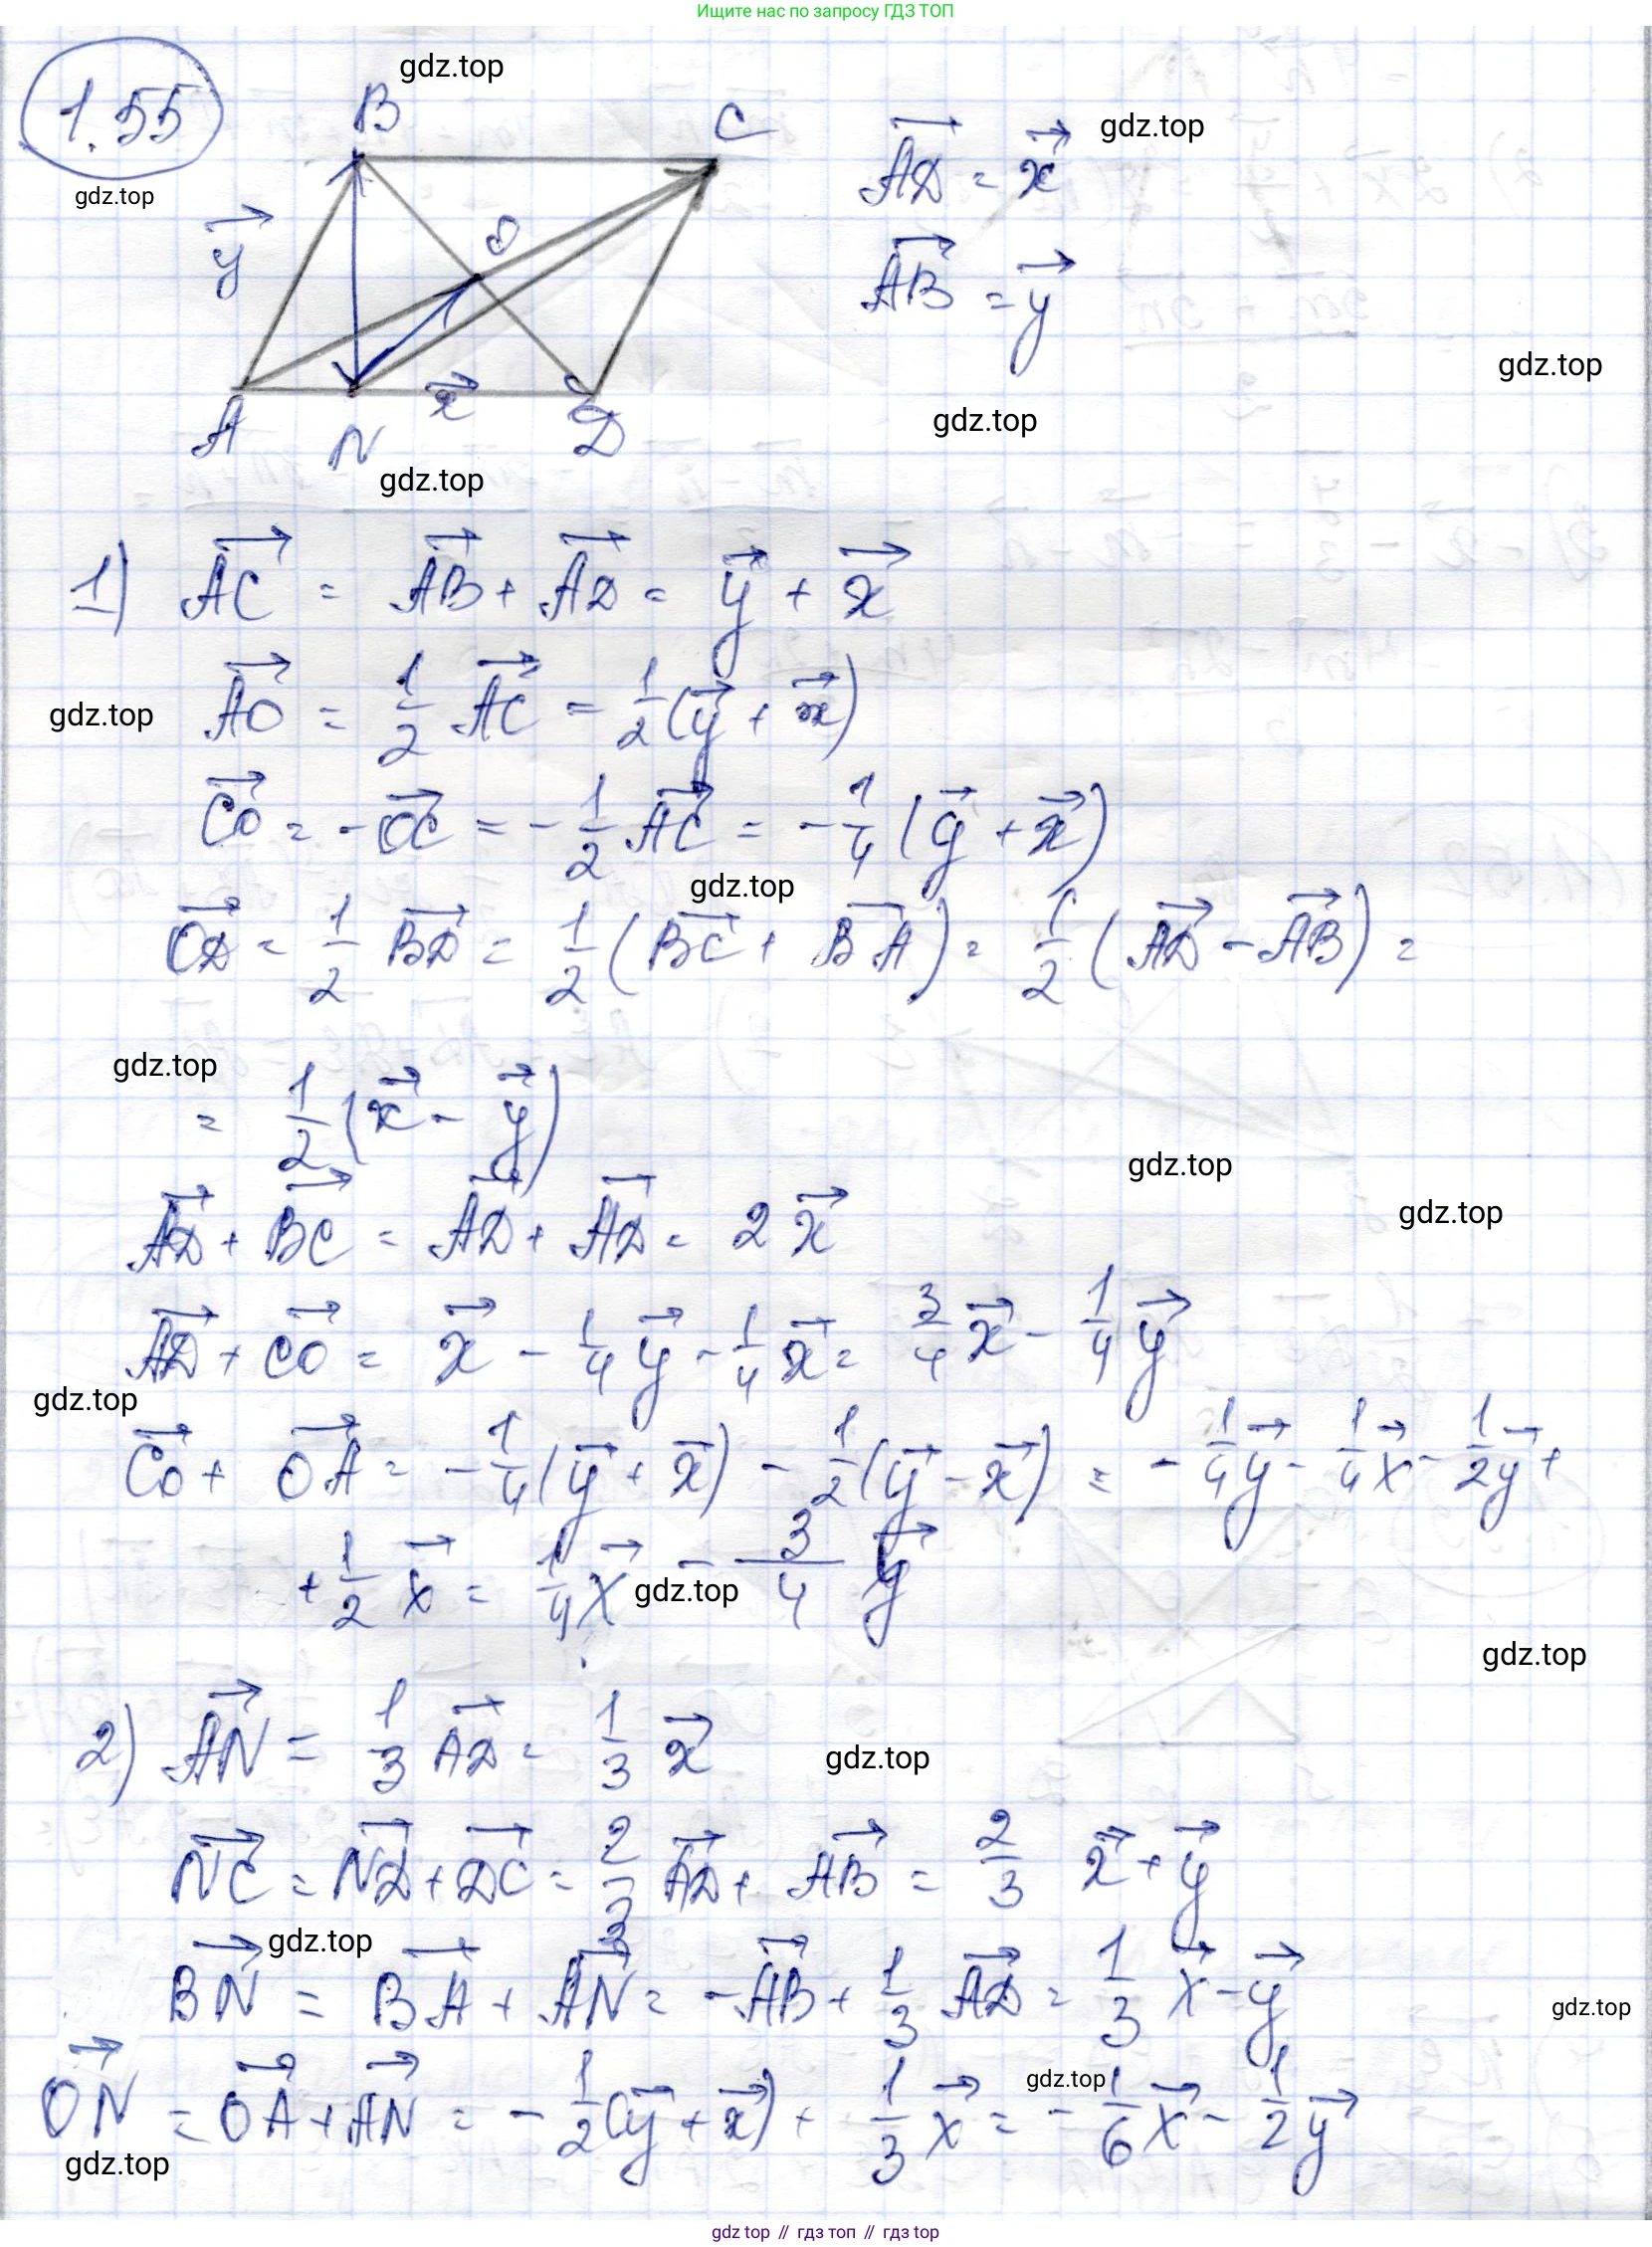 Ищите нас по запросу ГДЗ ТОП
1.55
gdz.top
gdz.top
B
C
y⃗
O
A
N
x⃗
D
AD⃗ = x⃗
gdz.top
AB⃗ = y⃗
gdz.top
gdz.top
gdz.top
1) AC⃗ = AB⃗ + AD⃗ = y⃗ + x⃗
gdz.top
AO⃗ = 1/2 AC⃗ = 1/2 (y⃗ + x⃗)
CO⃗ = -OC⃗ = -1/2 AC⃗ = -1/4 (y⃗ + x⃗)
gdz.top
OD⃗ = 1/2 BD⃗ = 1/2 (BC⃗ + BA⃗) = 1/2 (AD⃗ - AB⃗) =
gdz.top
= 1/2 (x⃗ - y⃗)
gdz.top
gdz.top
AD⃗ + BC⃗ = AD⃗ + AD⃗ = 2x⃗
AD⃗ + CO⃗ = x⃗ - 1/4 y⃗ - 1/4 x⃗ = 3/4 x⃗ - 1/4 y⃗
gdz.top
CO⃗ + OA⃗ = -1/4 (y⃗ + x⃗) - 1/2 (y⃗ - x⃗) = -1/4 y⃗ - 1/4 x⃗ - 1/2 y⃗ +
+ 1/2 x⃗ = 1/4 x⃗ - 3/4 y⃗
gdz.top
gdz.top
2) AN⃗ = 1/3 AD⃗ = 1/3 x⃗
gdz.top
NC⃗ = ND⃗ + DC⃗ = 2/3 AD⃗ + AB⃗ = 2/3 x⃗ + y⃗
gdz.top
BN⃗ = BA⃗ + AN⃗ = -AB⃗ + 1/3 AD⃗ = 1/3 x⃗ - y⃗
gdz.top
ON⃗ = OA⃗ + AN⃗ = -1/2 (y⃗ + x⃗) + 1/3 x⃗ = -1/6 x⃗ - 1/2 y⃗
gdz.top
gdz.top
gdz top // гдз топ // гдз top